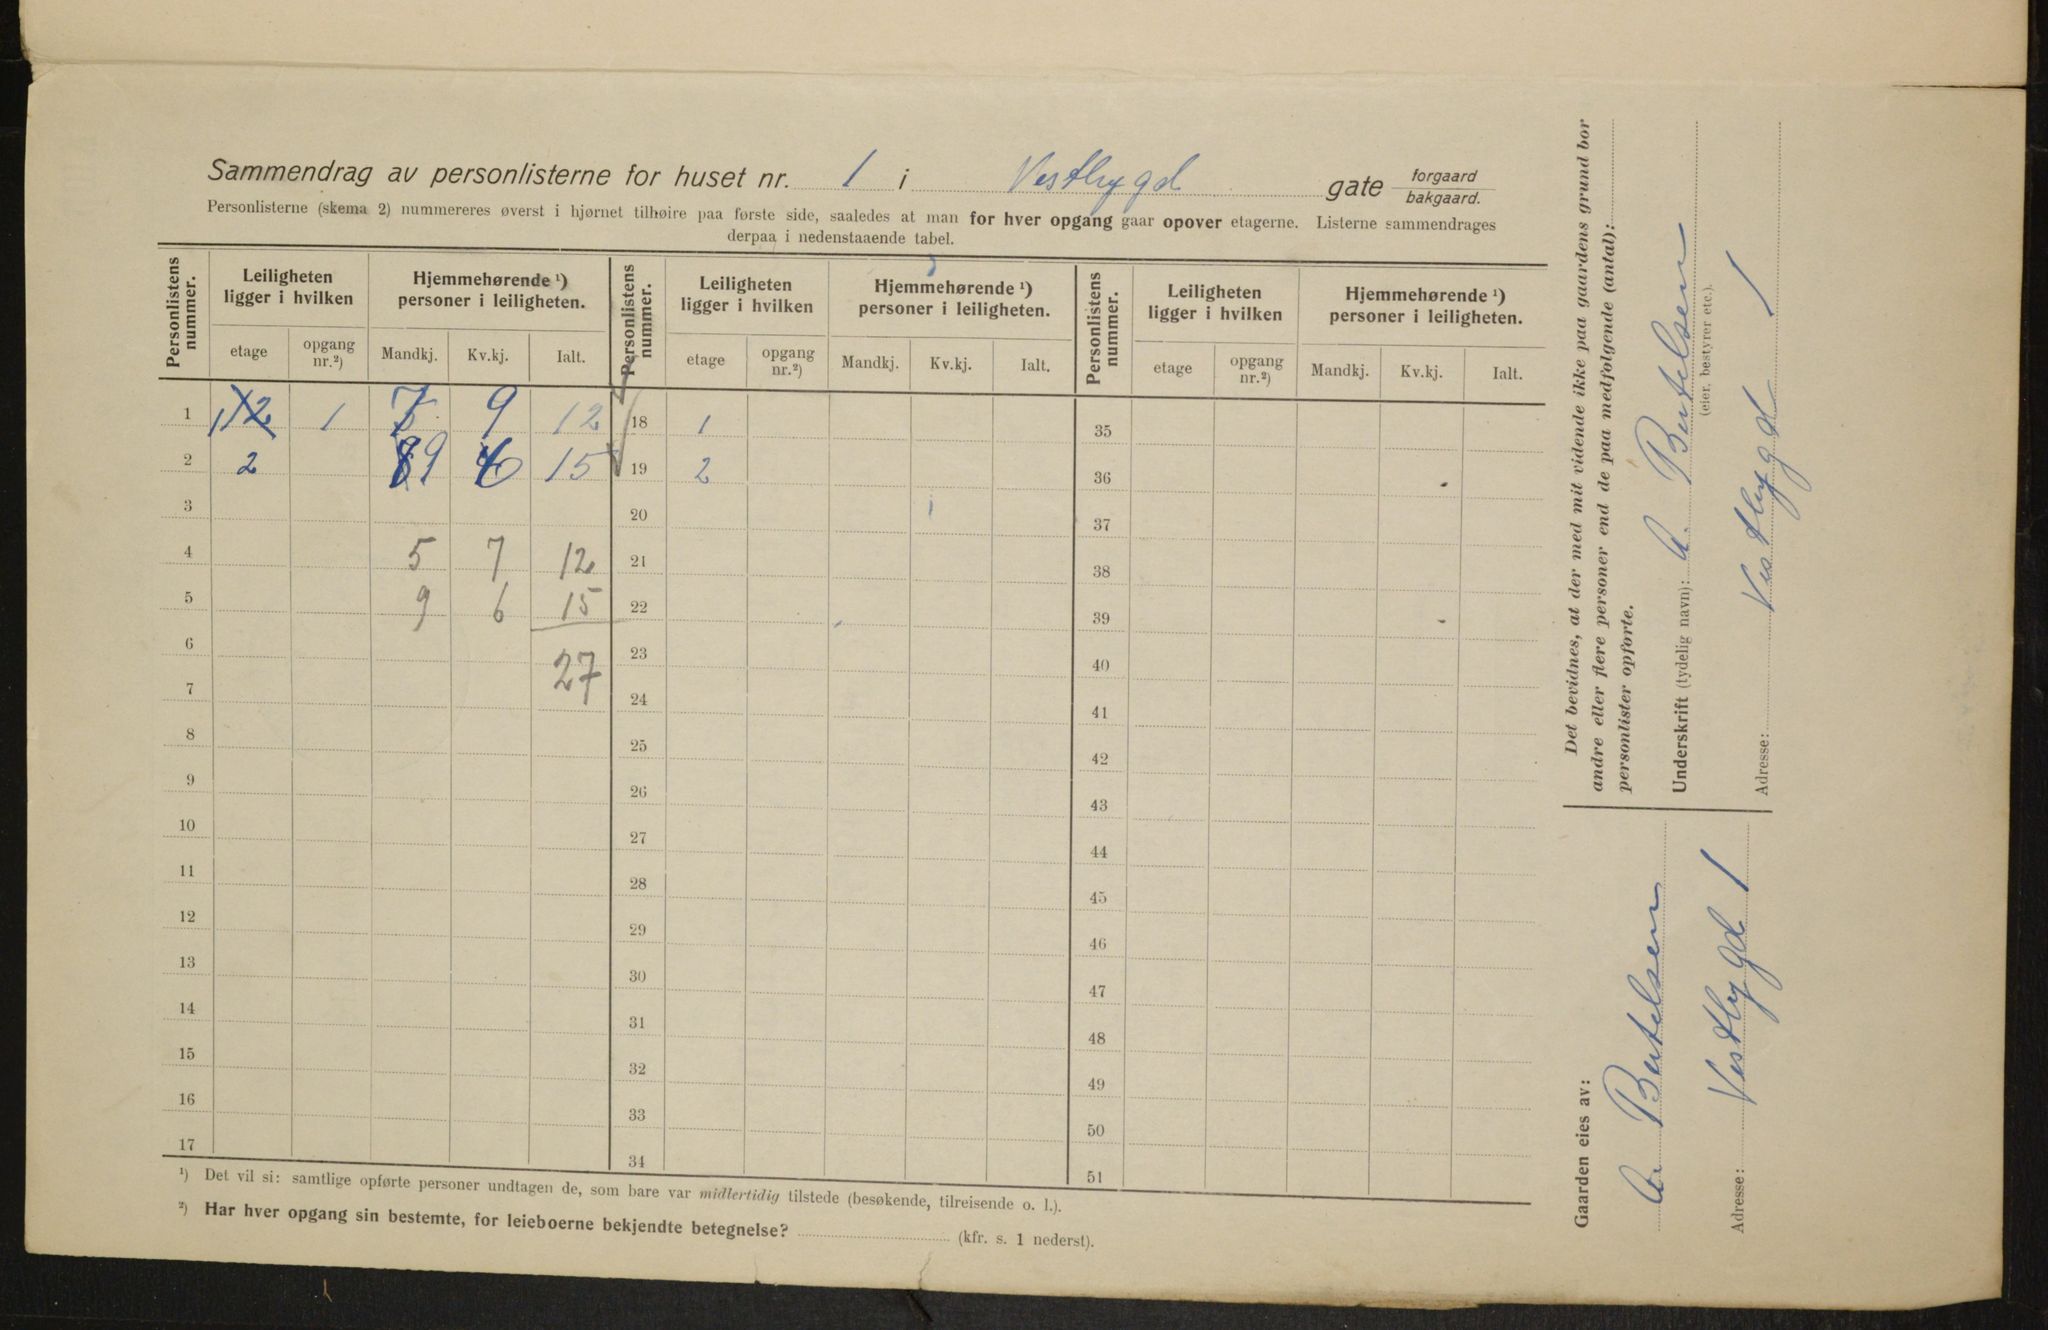 Sammendrag av personlisterne for huset nr. 1 i Vestbygd gate forgaard
bakgaard.
Personlisterne (skema 2) nummereres øverst i hjørnet tilhøire paa første side, saaledes at man for hver opgang gaar opover etagerne. Listerne sammendrages
derpaa i nedenstaaende tabel.
Personlistens nummer. Leiligheten ligger i hvilken Hjemmehørende ¹) personer i leiligheten. Personlistens nummer. Leiligheten ligger i hvilken Hjemmehørende ¹) personer i leiligheten. Personlistens nummer. Leiligheten ligger i hvilken Hjemmehørende ¹) personer i leiligheten.
etage opgang nr.²) Mandkj. Kv.kj. Ialt. etage opgang nr.²) Mandkj. Kv.kj. Ialt. etage opgang nr.²) Mandkj. Kv.kj. Ialt.
1 1 1 9 12 18 1 35
2 2 9 6 15 19 2 36
3 20 37
4 5 7 12 21 38
5 9 6 15 22 39
6 23 40
27
7 24 41
8 25 42
9 26 43
10 27 44
11 28 45
12 29 46
13 30 47
14 31 48
15 32 49
16 33 50
17 34 51
¹) Det vil si: samtlige opførte personer undtagen de, som bare var midlertidig tilstede (besøkende, tilreisende o. l.).
²) Har hver opgang sin bestemte, for leieboerne bekjendte betegnelse? (kfr. s. 1 nederst).
Det bevidnes, at der med mit vidende ikke paa gaardens grund bor
andre eller flere personer end de paa medfølgende (antal):
personlister opførte.
Underskrift (tydelig navn): A. Bertelsen
(eier, bestyrer etc.).
Adresse: Vestbygd 1
Gaarden eies av:
A. Bertelsen
Adresse: Vestbygd 1